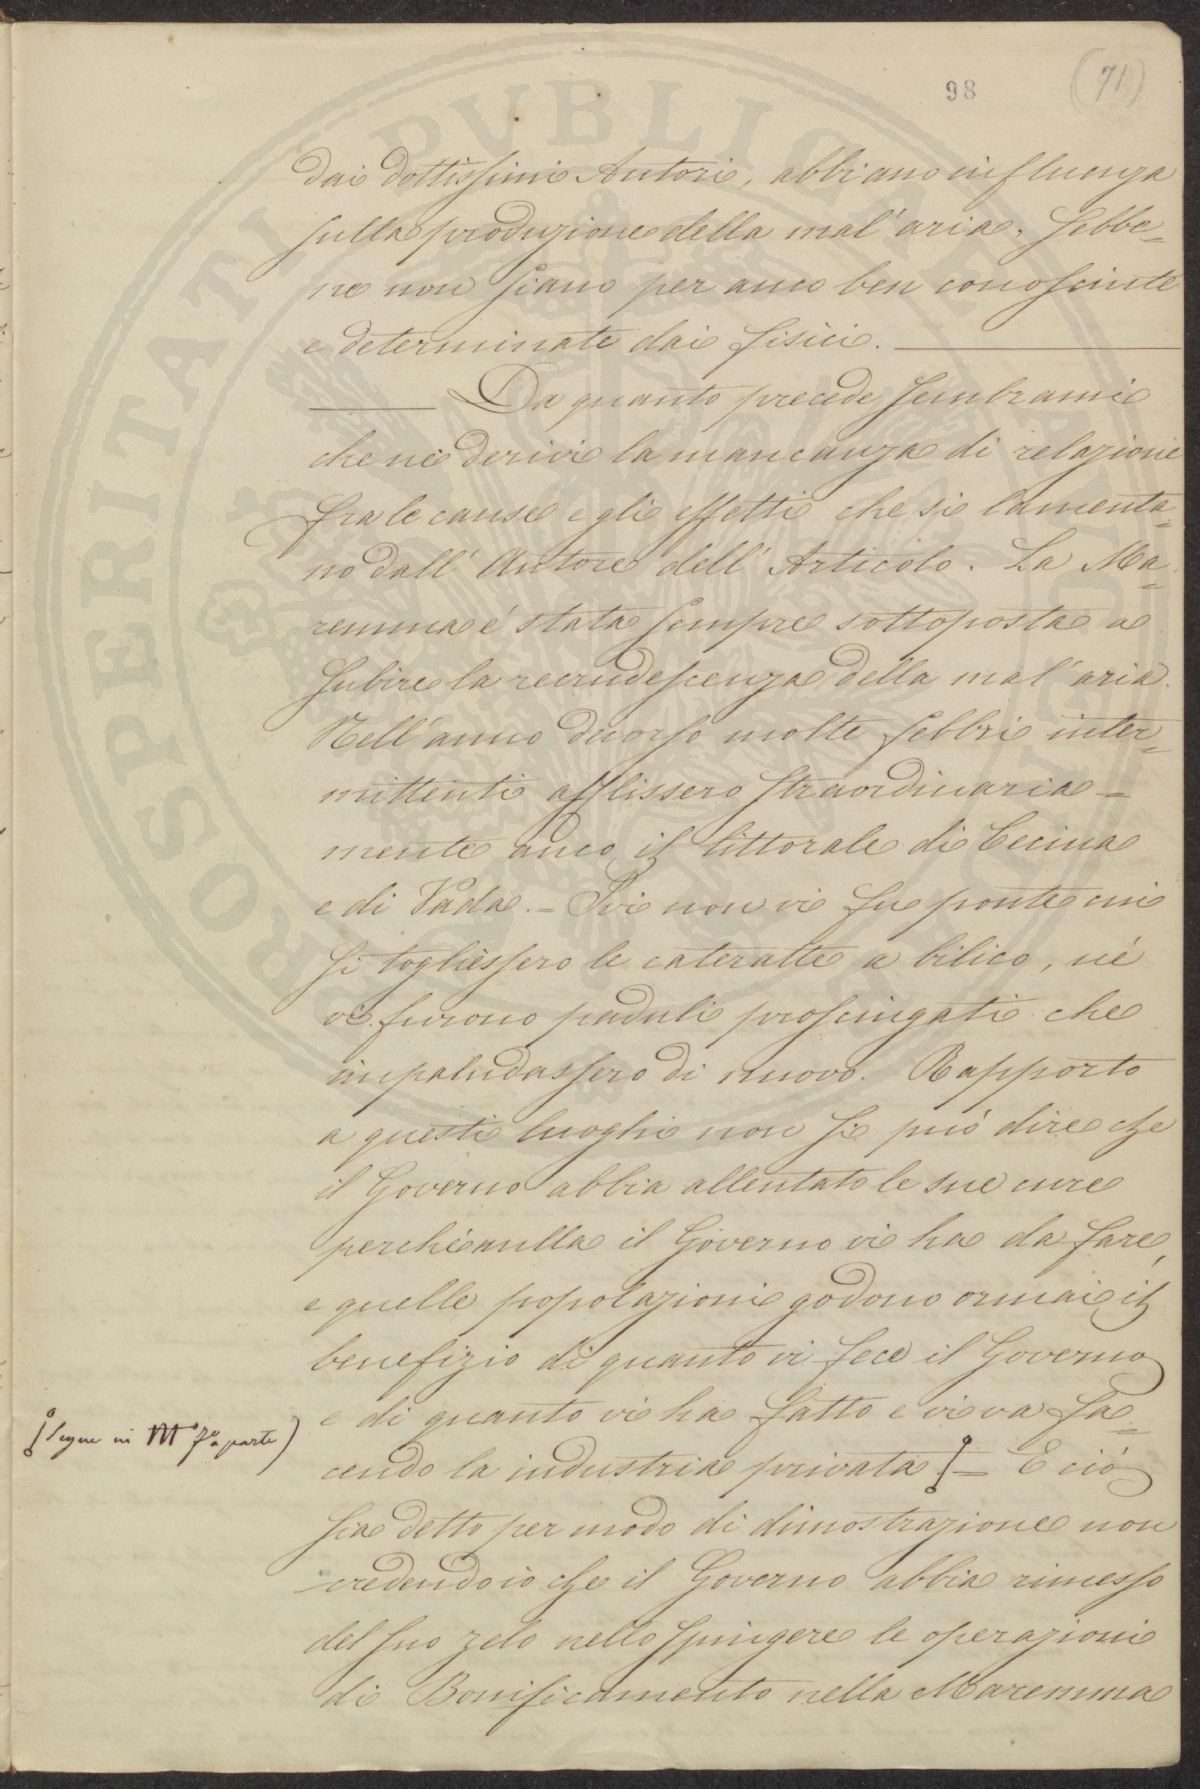 98
(71)
dai dottissimi Autori, abbiano influenza
sulla produzione della mal'aria, sebbe=
ne non siano per anco ben conosciute
e determinate dai fisici.
Da quanto precede sembrami
che ne derivi la mancanza di relazione
fra le cause e gli effetti che si lamenta=
no dall'Autore dell'Articolo. La Ma=
remma é stata sempre sottoposta a
subire la recrudescenza della mal'aria.
Nell'anno decorso molte febbri inter=
mittenti afflissero straordinaria=
mente anco il littorale di Cecina
e di Vada. = Ivi non vi fu ponte cui
si togliessero le cateratte a bilico, né
vi furono paduli prosciugati che
impaludassero di nuovo. Rapporto
a questi luoghi non si può dire che
il Governo abbia allentato le sue cure
perché nulla il Governo vi ha da fare,
e quelle popolazioni godono ormai il
benefizio di quanto vi fece il Governo
e di quanto vi ha fatto e vi va fa=
cendo la industria privata = E ciò
sia detto per modo di dimostrazione non
credendo io che il Governo abbia rimesso
del suo zelo nello spingere le operazioni
di Bonificamento nella Maremma
(segue in a parte)
PROSPERITATI PUBLICAE